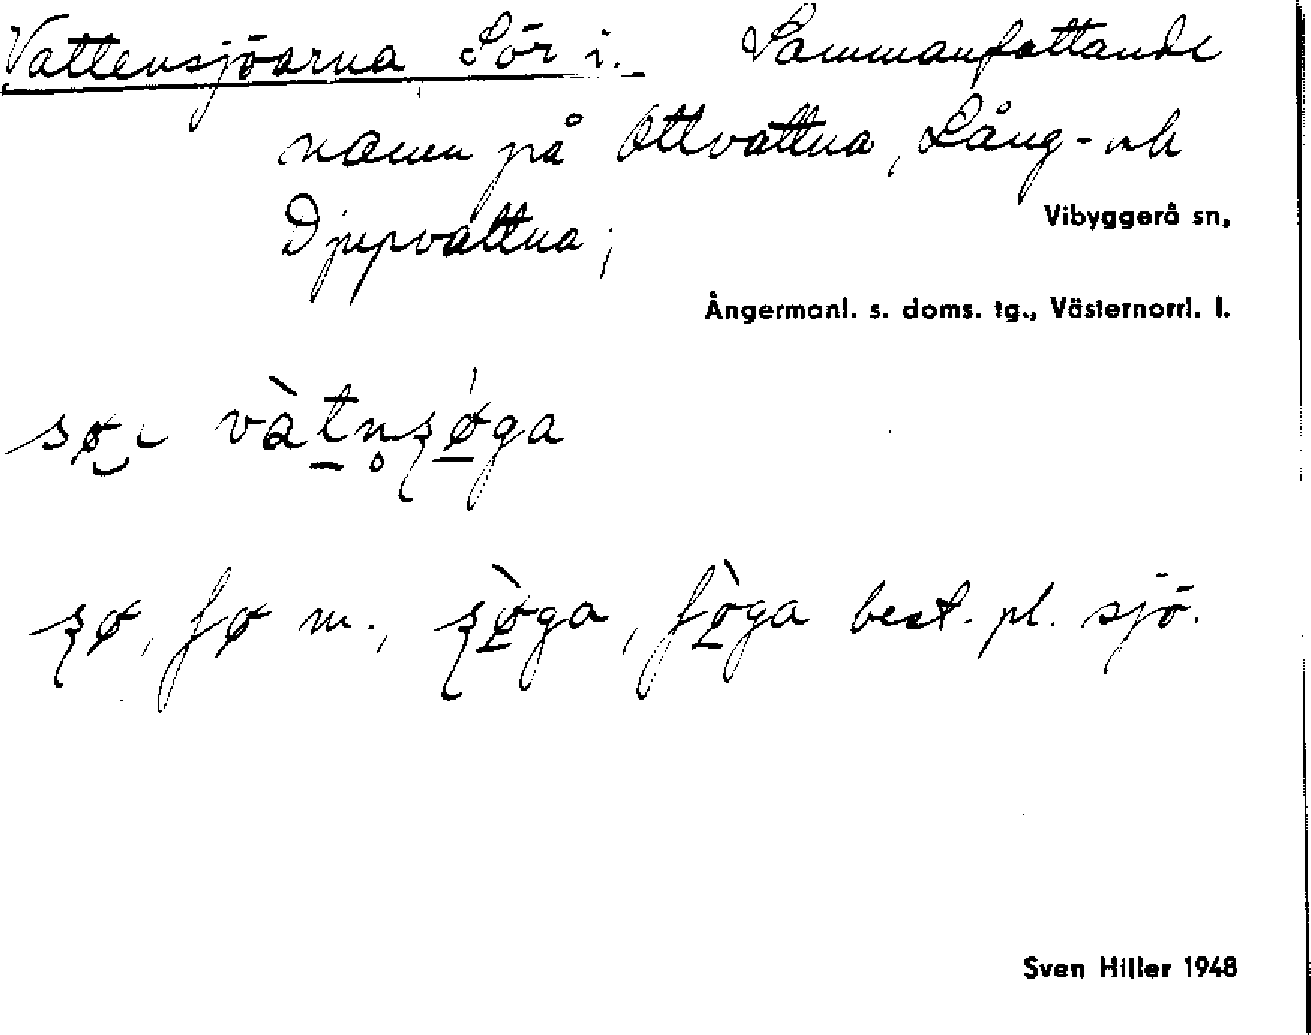 Vattensjöarna Sör i. Sammanfattande
namn på Ottvattna, Lång- och
Djupvattna;
Vibyggerå sn,
Ångermanl. s. doms. tg., Västernorrl. l.
sø̮ɩ vàt̲n̥ʂǿ̲ga
ʂø, ʃø m., ʂø̲̀ga, ʃø̲̀ga best. pl. sjö.
Sven Hiller 1948